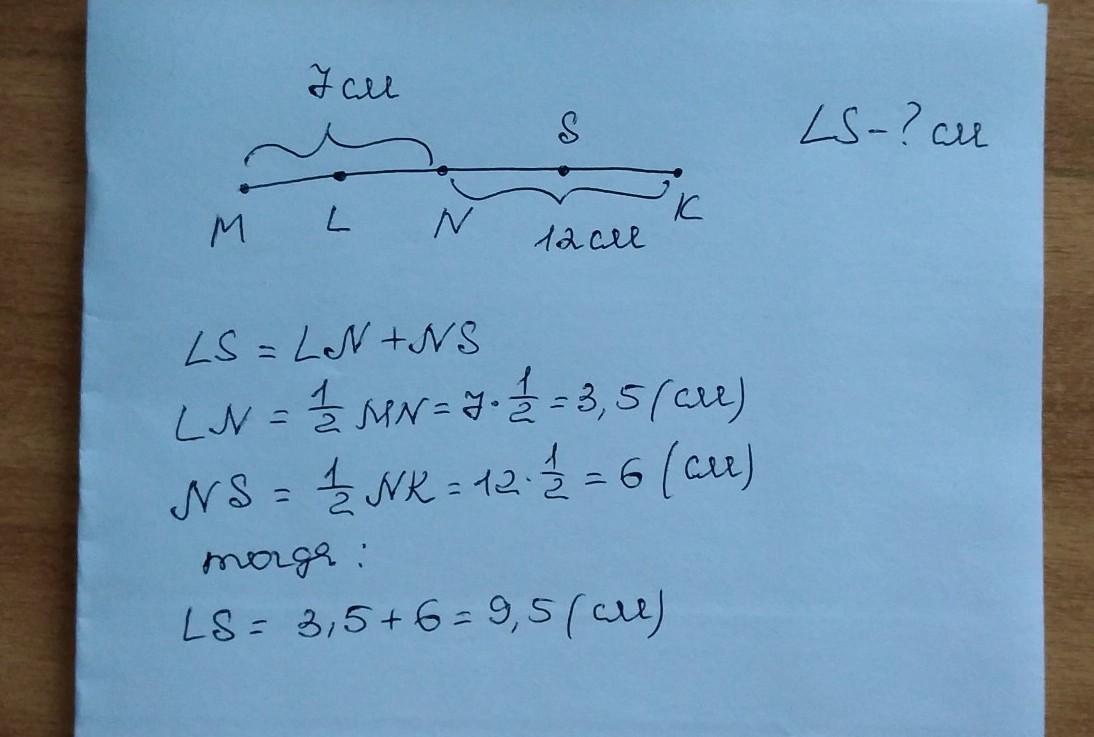 7 см
S
LS - ? см
M L N K
12 см
LS = LN + NS
LN = 1/2 MN = 7 · 1/2 = 3,5 (см)
NS = 1/2 NK = 12 · 1/2 = 6 (см)
тогда :
LS = 3,5 + 6 = 9,5 (см)